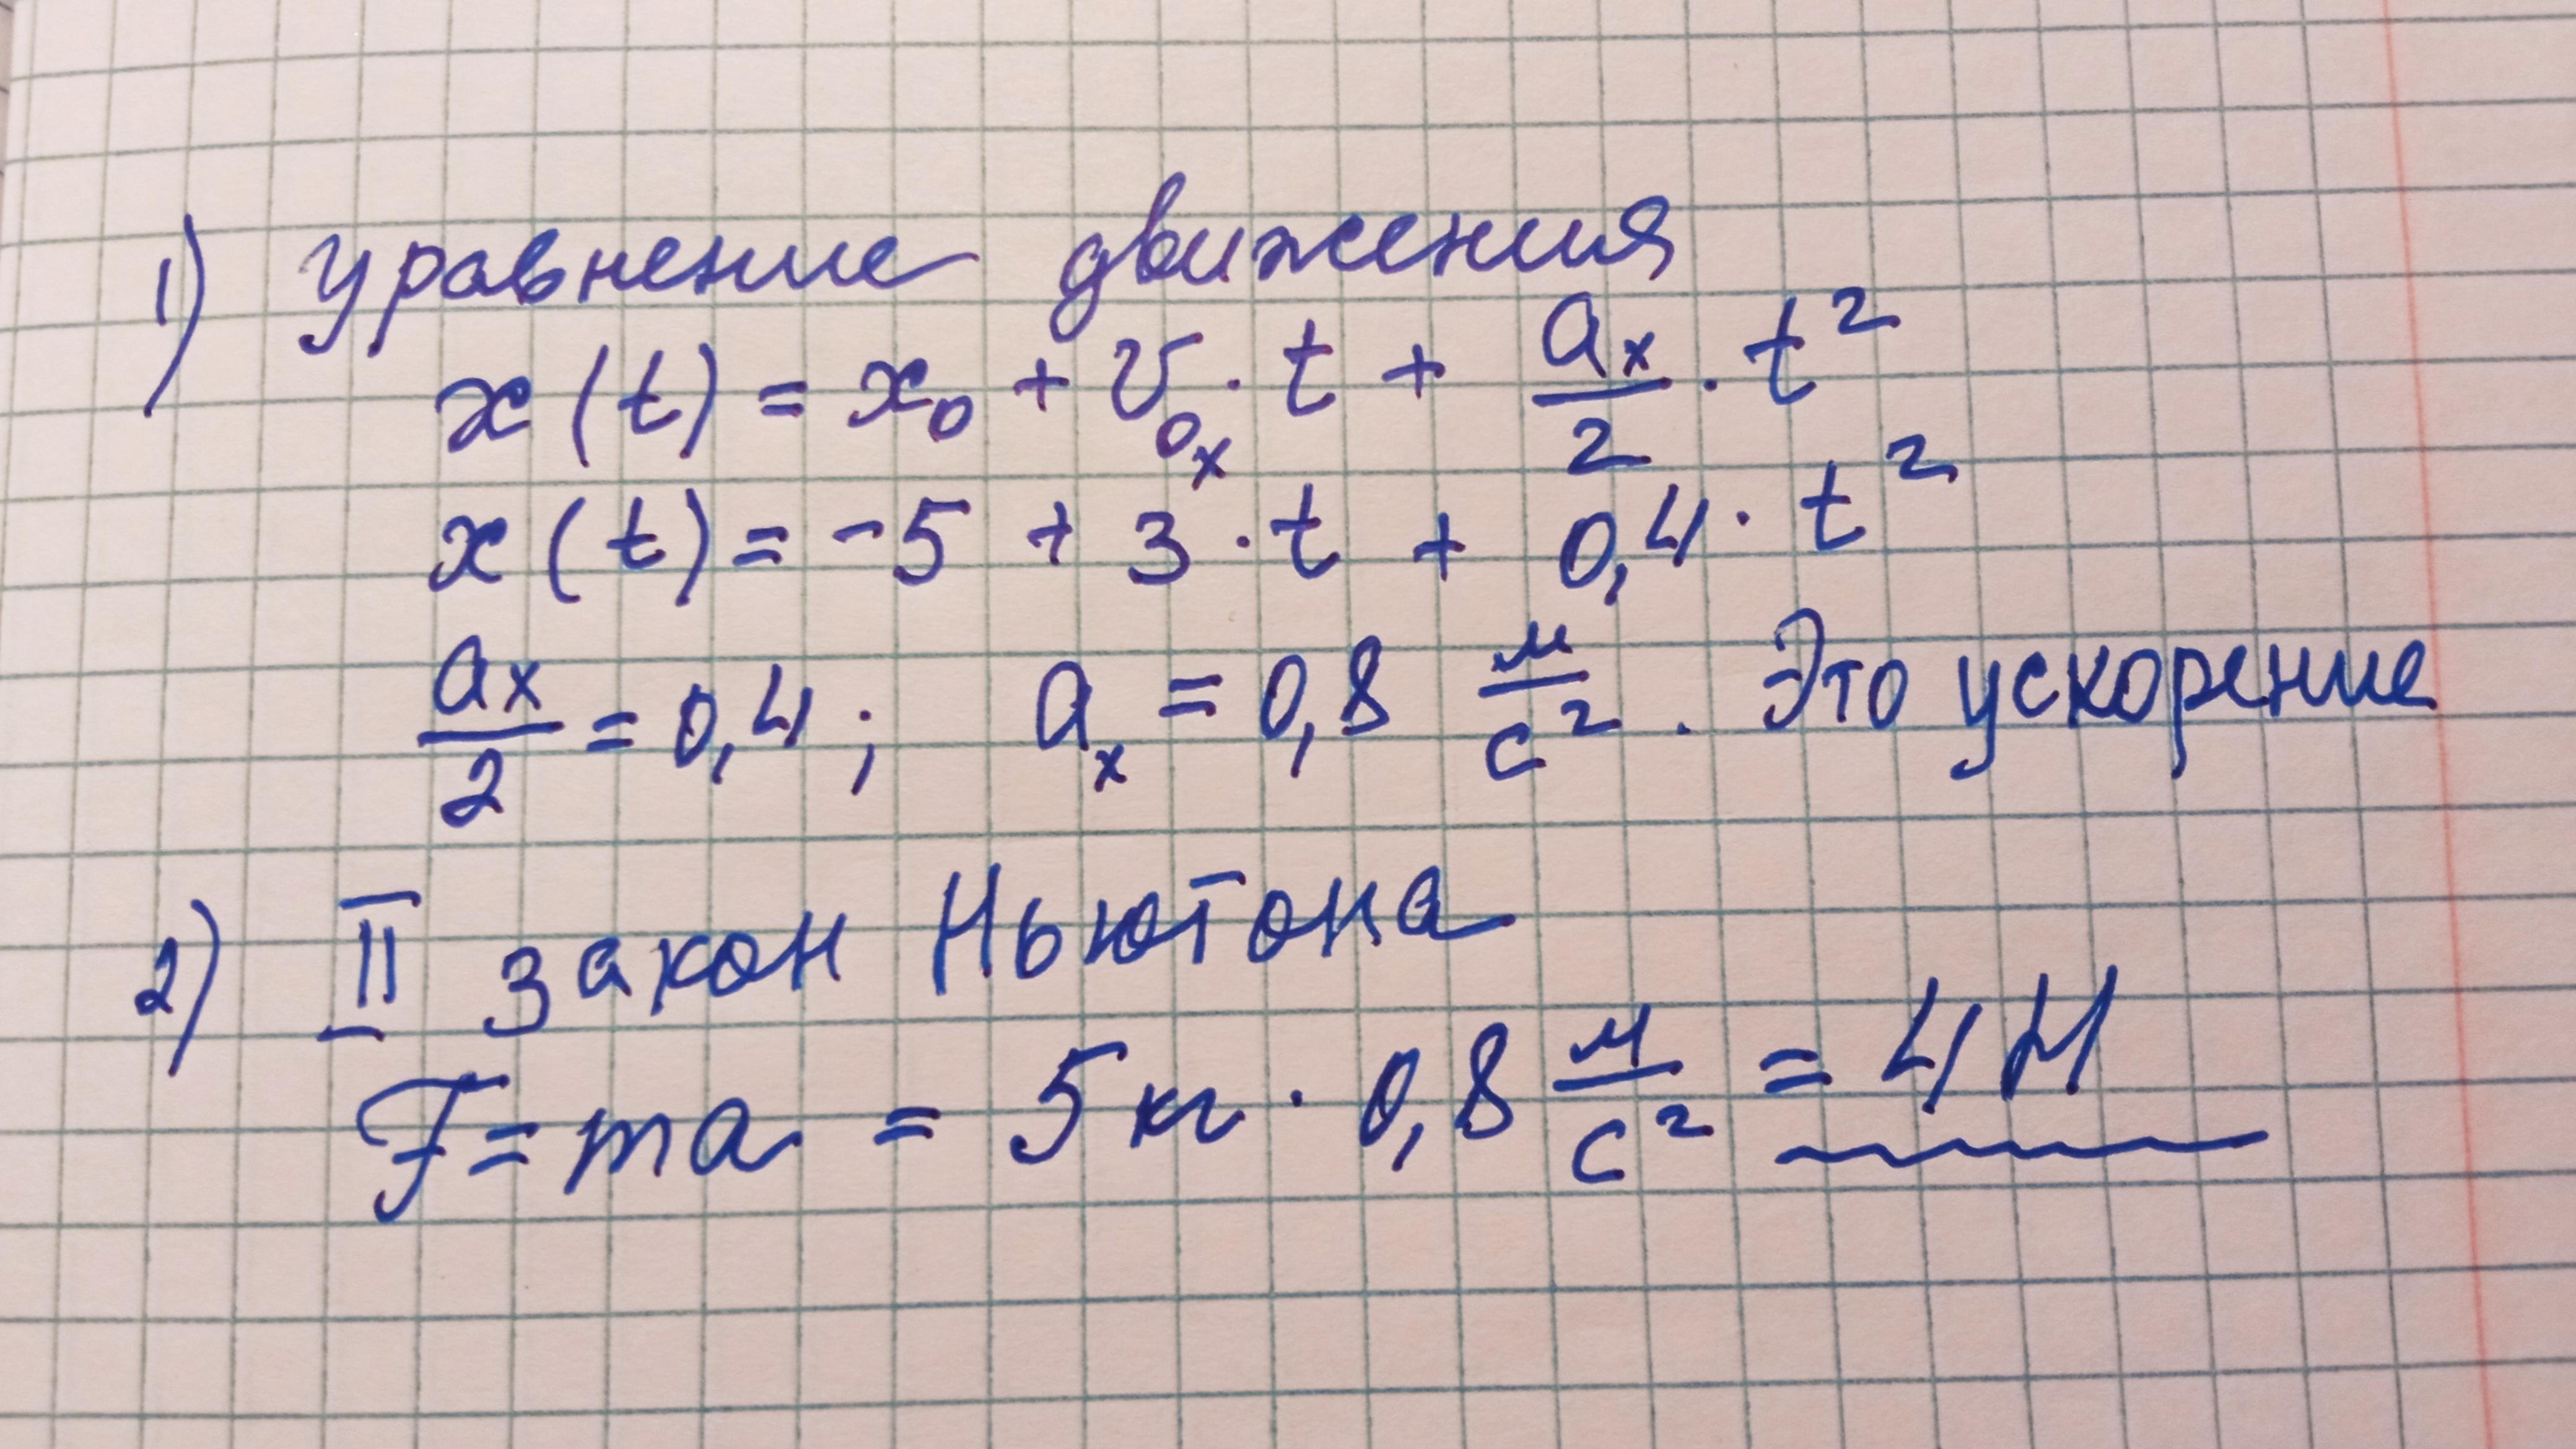 1) Уравнение движения
x(t) = x₀ + v₀ₓ · t + aₓ/2 · t²
x(t) = -5 + 3 · t + 0,4 · t²
aₓ/2 = 0,4 ; aₓ = 0,8 м/с² . Это ускорение
2) II закон Ньютона
F = ma = 5 кг · 0,8 м/с² = 4 Н